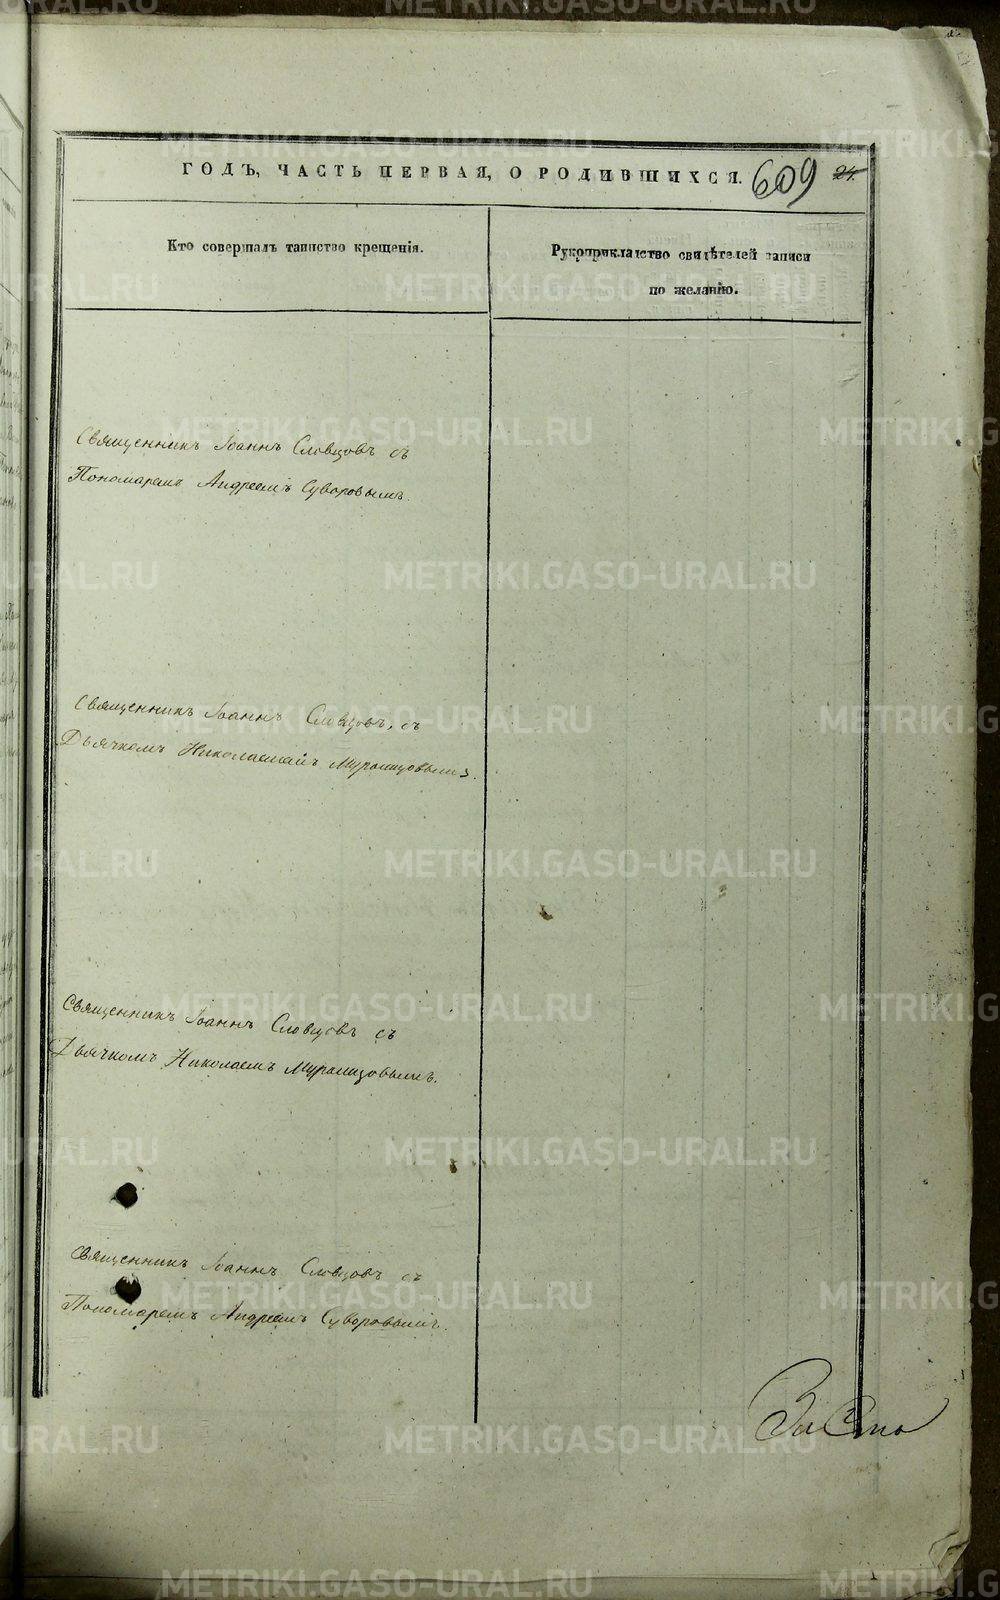 ГОДЪ, ЧАСТЬ ПЕРВАЯ, О РОДИВШИХСЯ. 609 24.
Кто совершалъ таинство крещенія.
Рукоприкладство свидѣтелей записи
по желанію.
Священникъ Іоаннъ Словцовъ съ
Пономаремъ Андреемъ Суворовымъ.
Священникъ Іоаннъ Словцовъ, съ
Дьячкомъ Николаемъ Мурашовымъ.
Священникъ Іоаннъ Словцовъ съ
Дьячкомъ Николаемъ
Священникъ Іоаннъ Словцовъ съ
Пономаремъ Андреемъ Суворовымъ.
METRIKI.GASO-URAL.RU